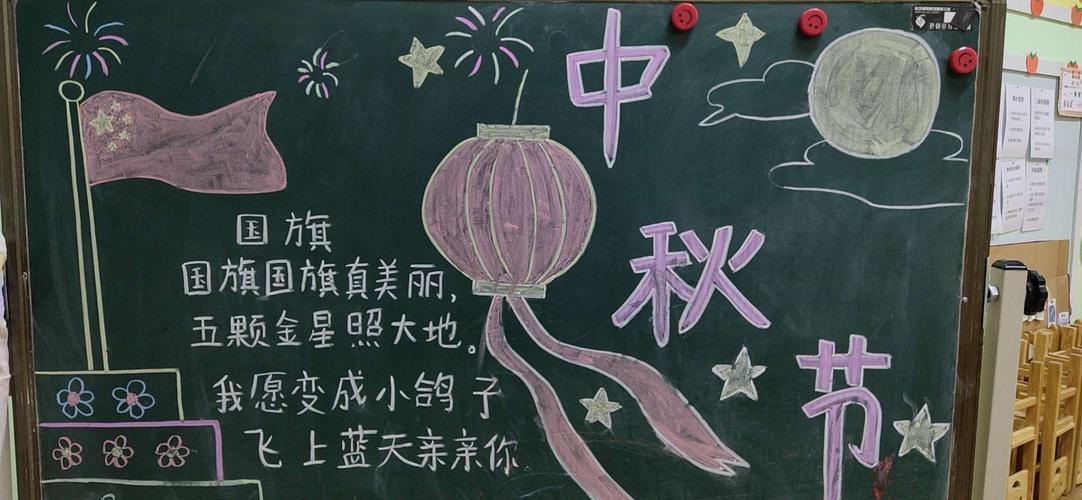 中秋节
国旗
国旗国旗真美丽,
五颗金星照大地。
我愿变成小鸽子
飞上蓝天亲亲你